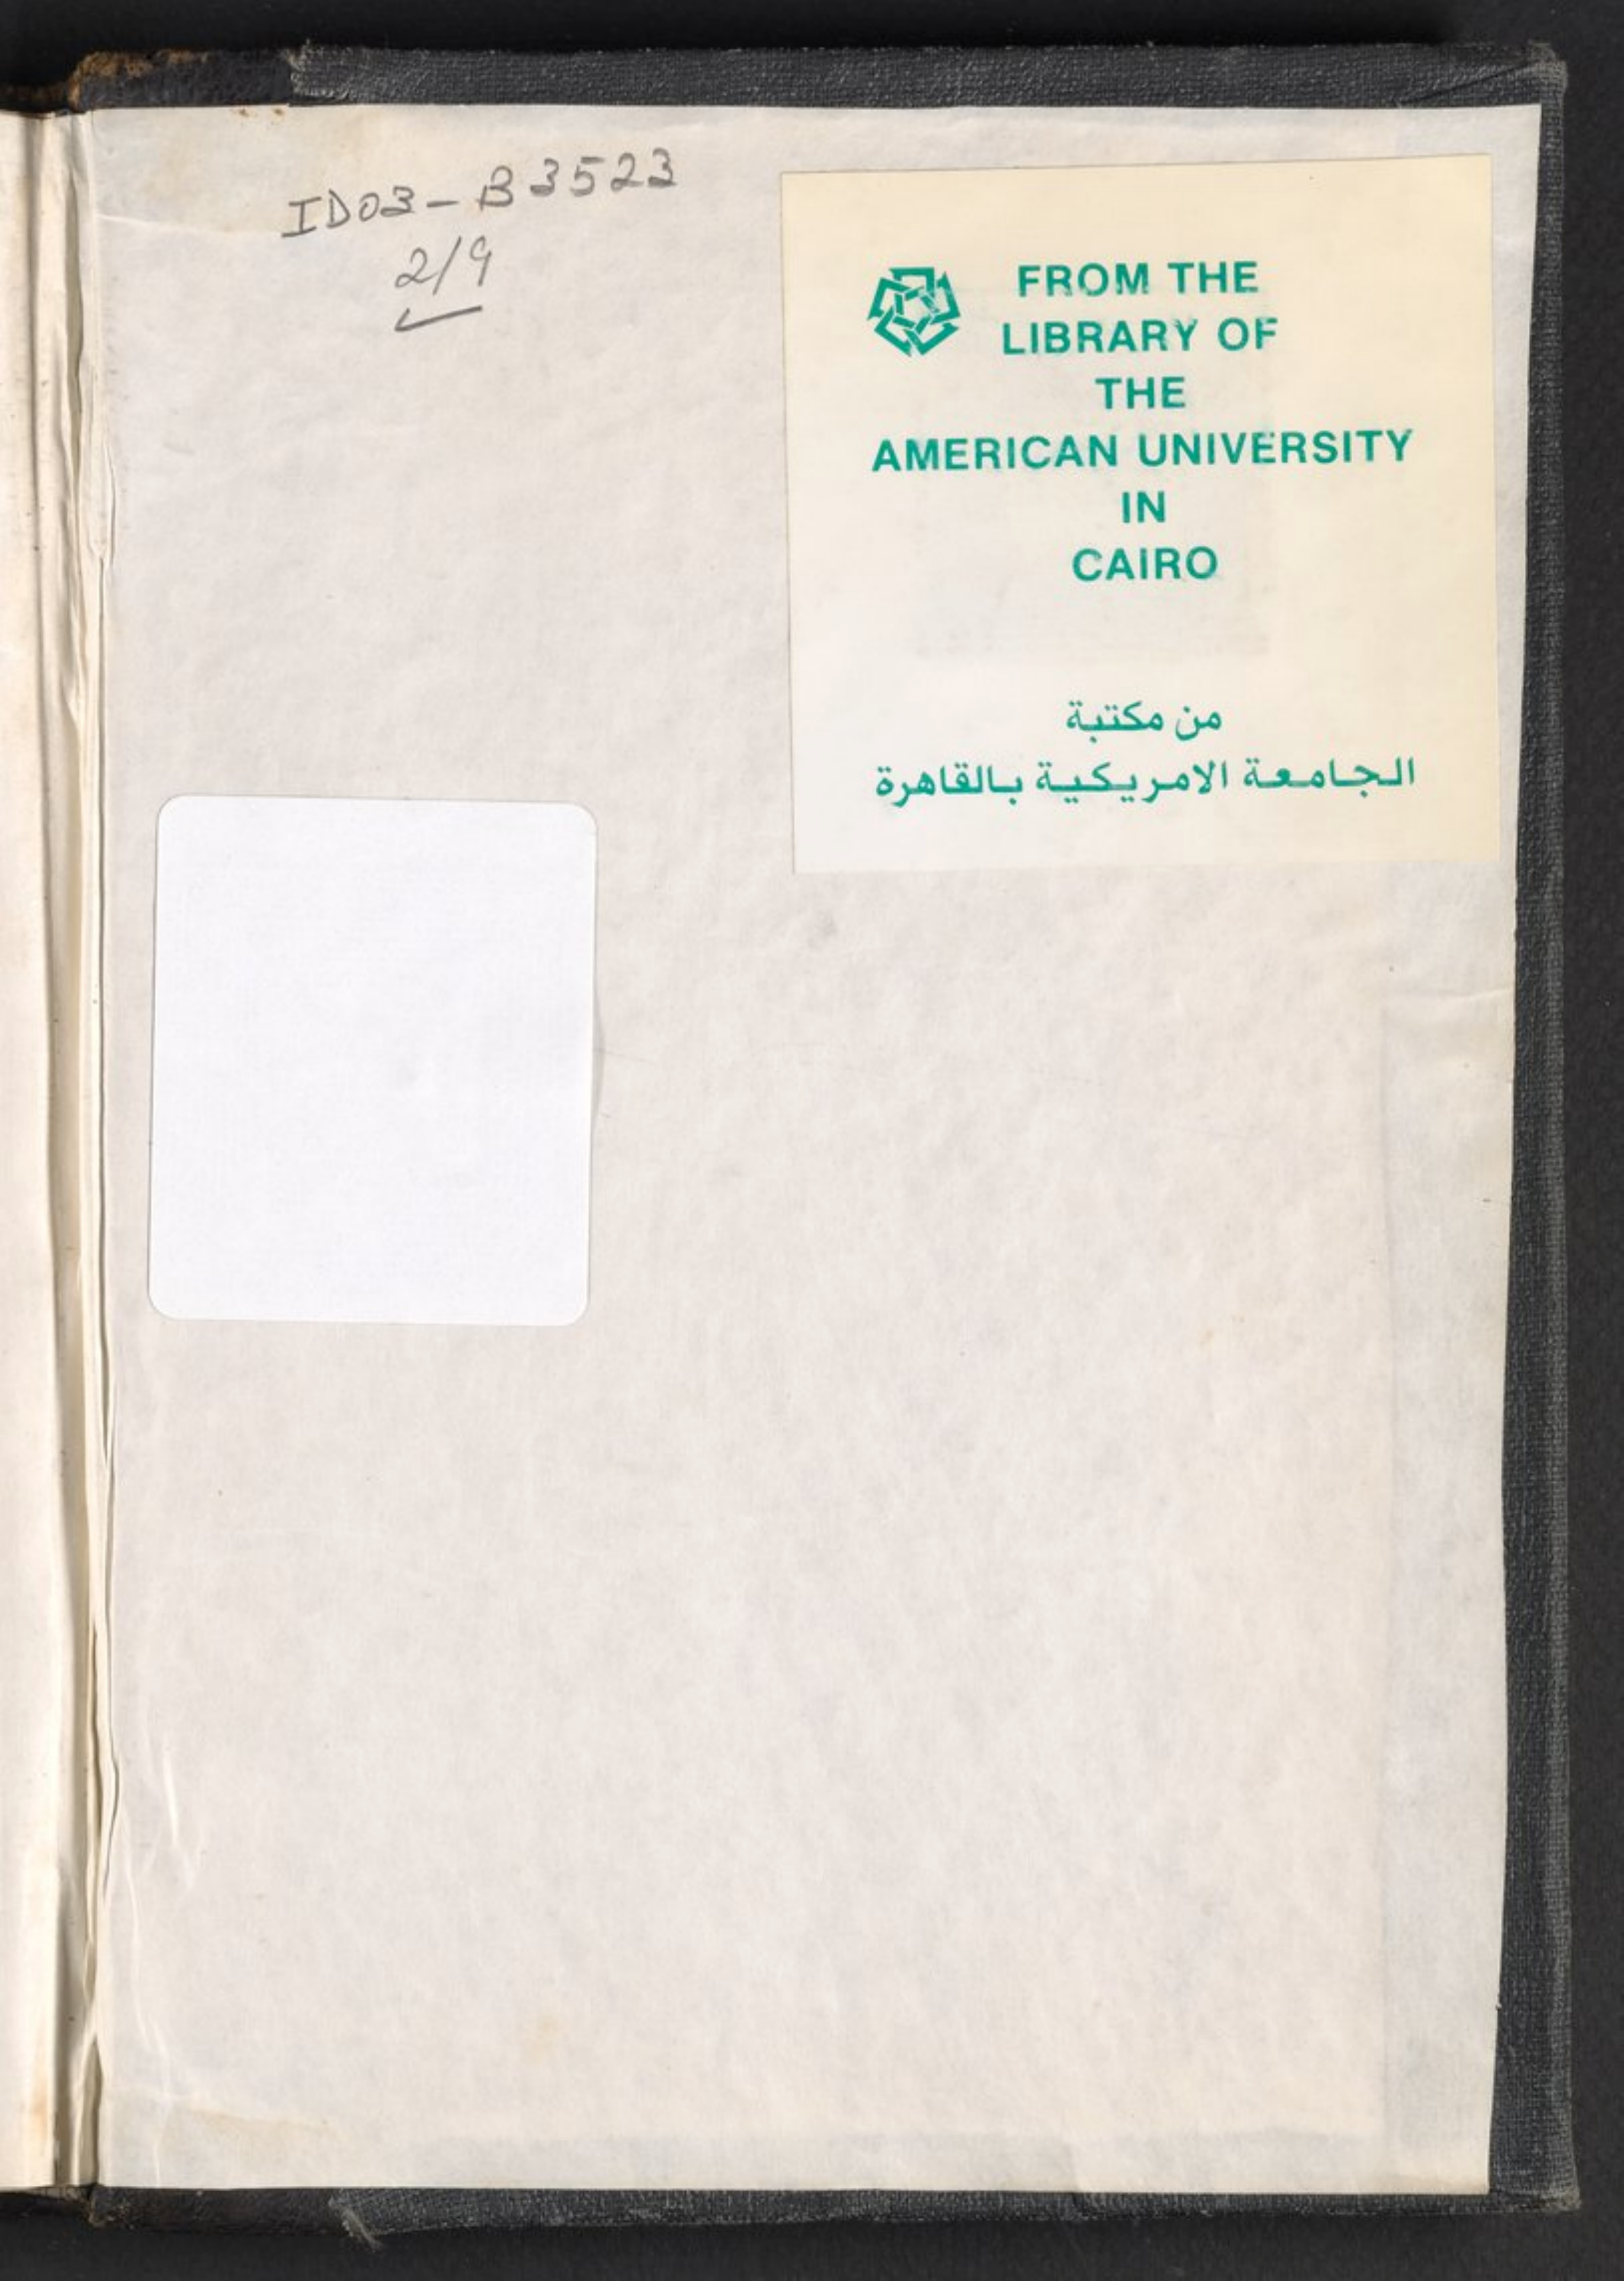 ID03-B3523
2/9
FROM THE
LIBRARY OF
THE
AMERICAN UNIVERSITY
IN
CAIRO
من مكتبة
الجامعة الامريكية بالقاهرة